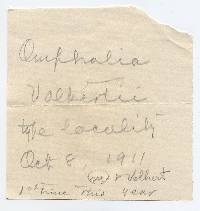 Omphalia
Volkertii
type locality
Oct 8, 1911
& Volkert
1st time this year